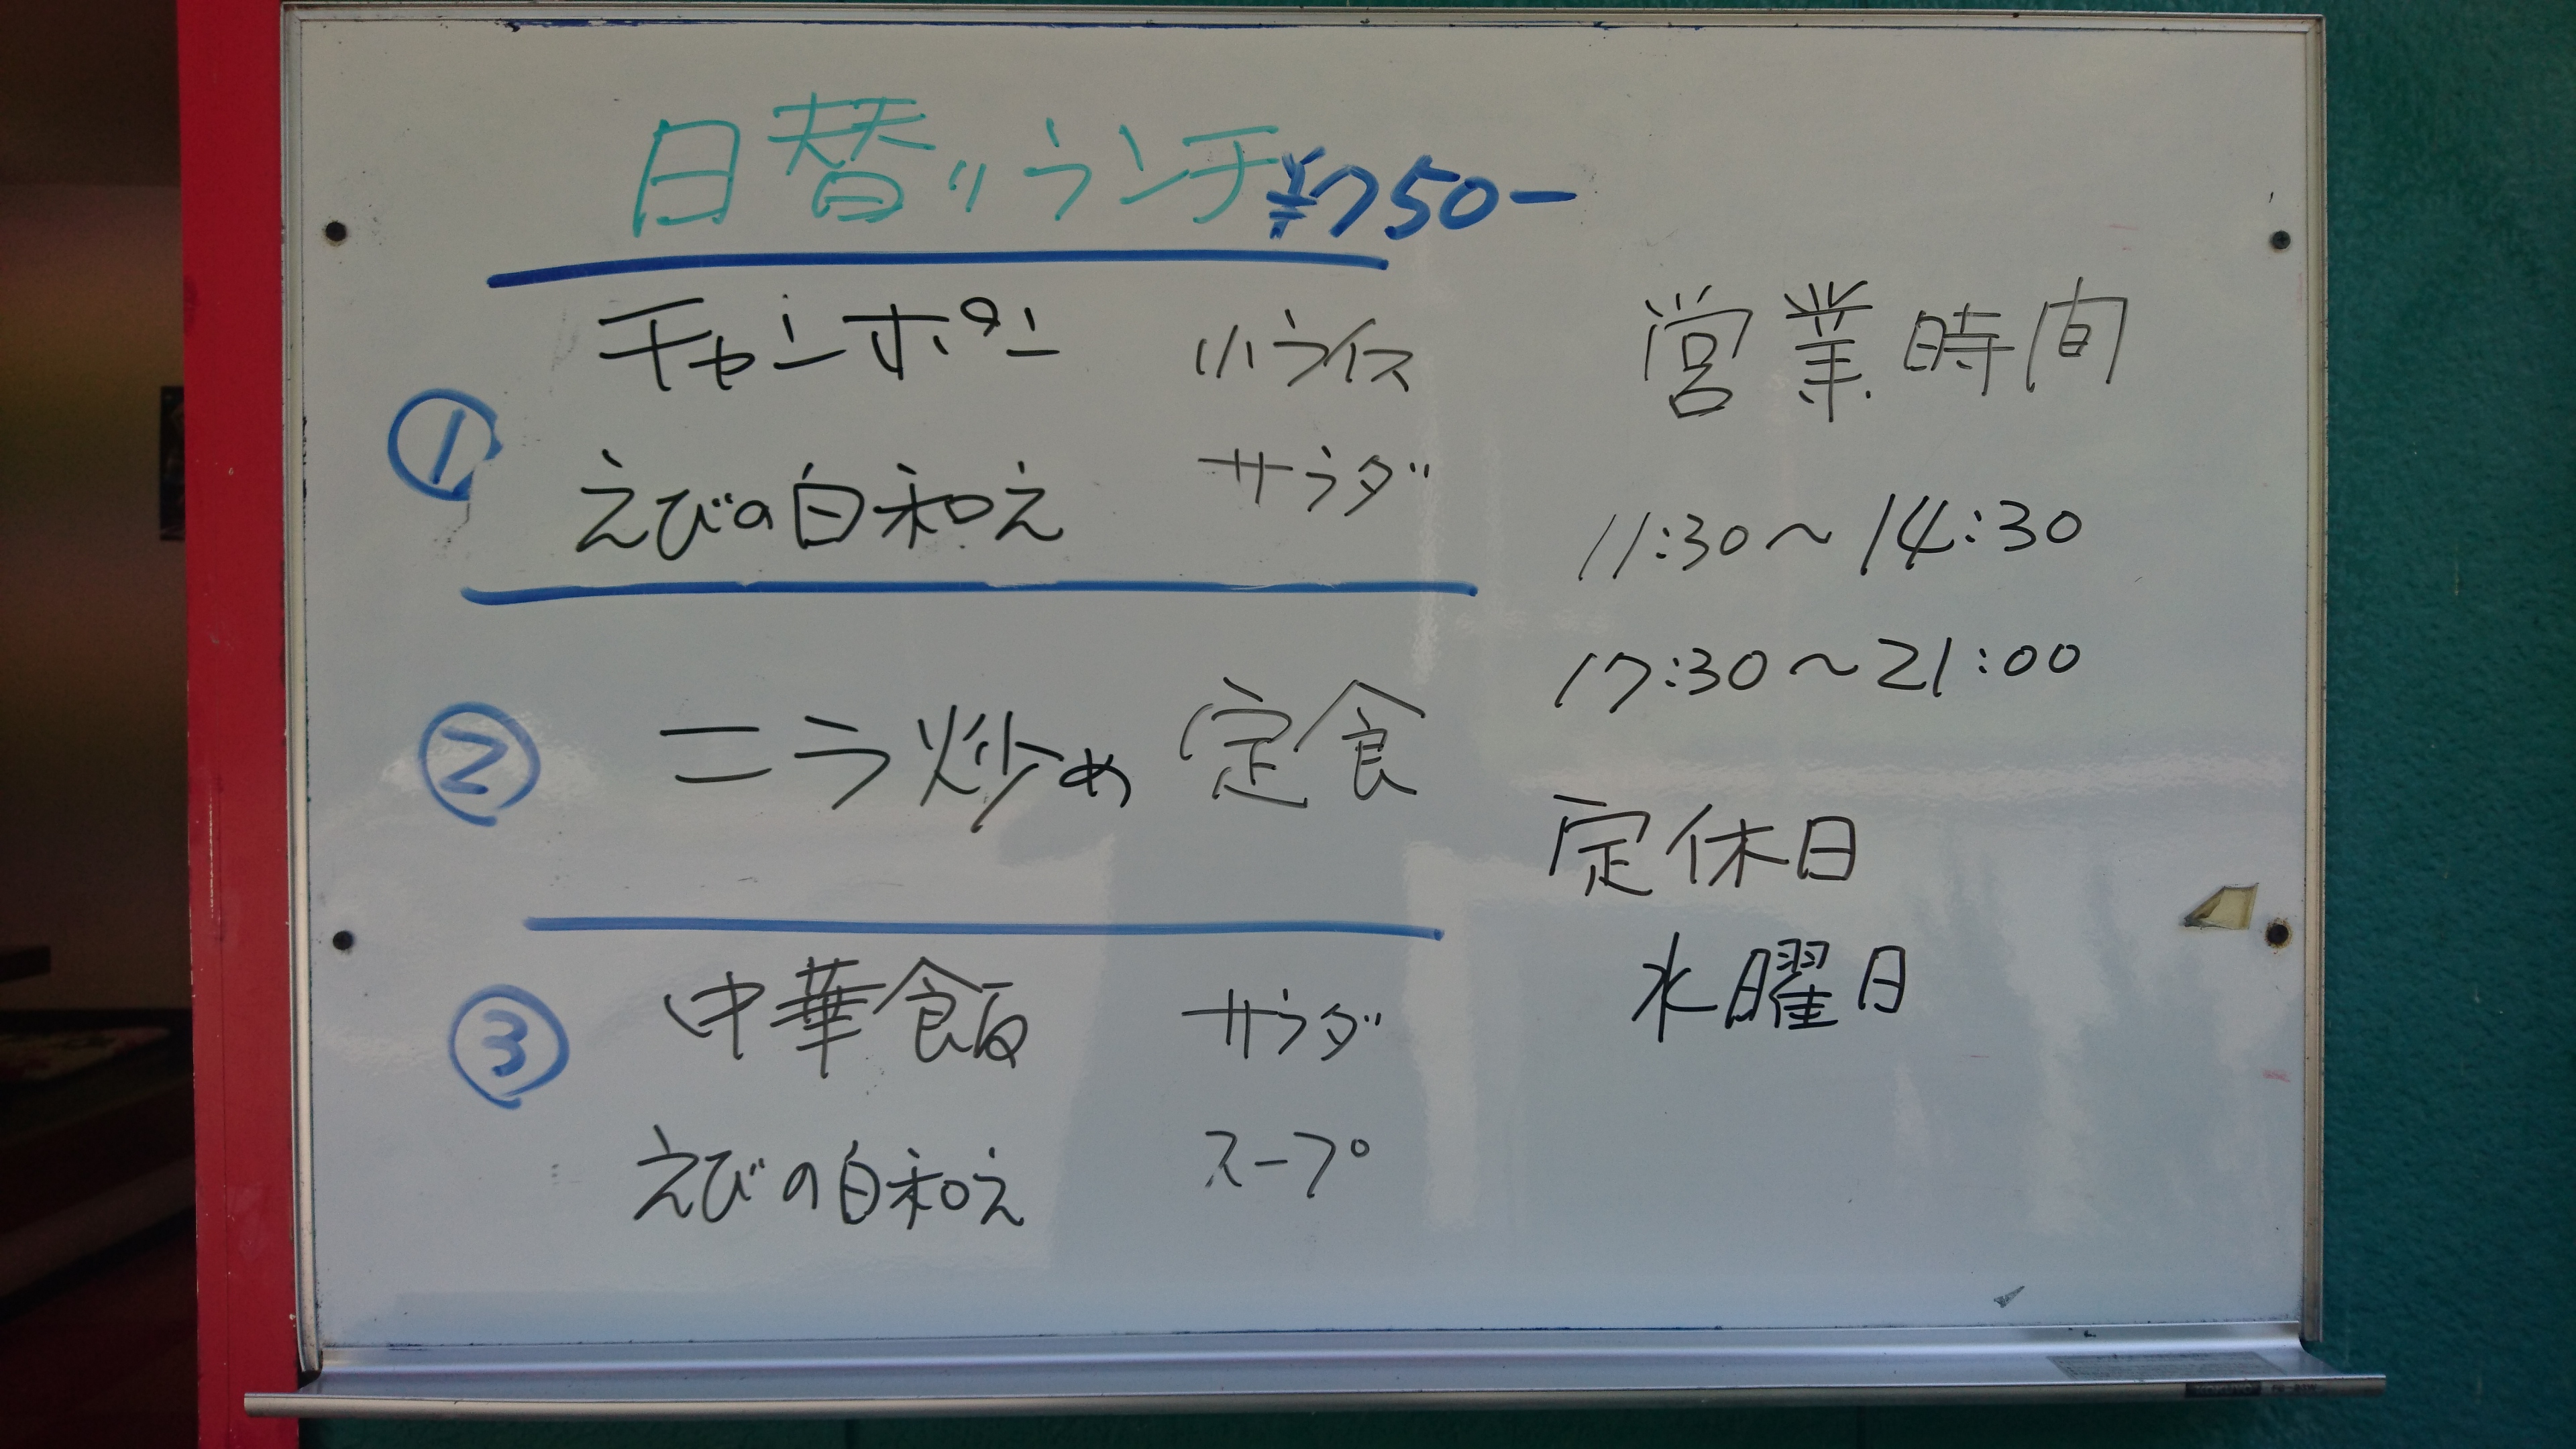 日替りランチ ¥750-
①
チャンポン 小ライス
えびの白和え サラダ
②
ニラ炒め 定食
③
中華飯 サラダ
えびの白和え スープ
営業時間
11:30〜14:30
17:30〜21:00
定休日
水曜日